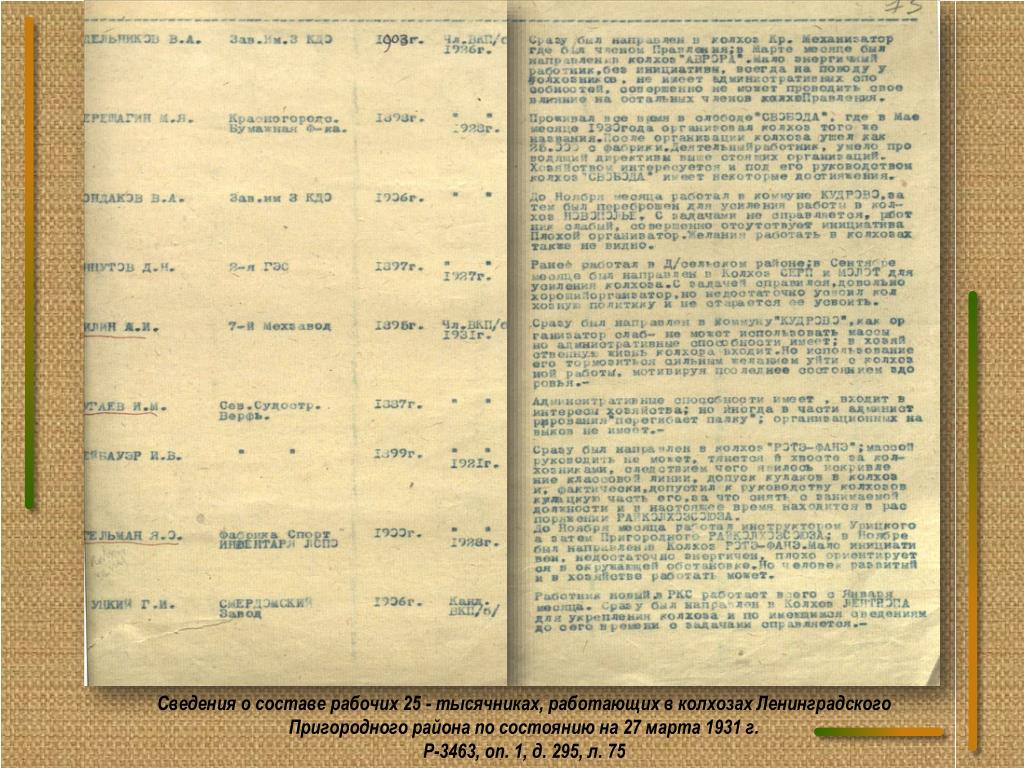 75
ДЕЛЬНИКОВ В.А. Зав.Им.3 КДО 1903г. Чл.ВКП/б 1926г.
Сразу был направлен в колхоз Кр. Механизатор
где был членом Правления;в Марте месяце был
направлен в колхоз "АВРОРА".Мало энергичный
работник,без инициативы, всегда на поводу у
колхозников, не имеет административных спо
собностей, совершенно не может проводить свое
влияние на остальных членов колхоПравления.
ЕРЕШАГИН М.Я. Красногородс. Бумажная Ф-ка. 1898г. " " 1928г.
Проживал все время в слободе"СВОБОДА", где в Мае
месяце 1930года организовал колхоз того же
названия.После организации колхоза ушел как
25.000 с фабрики.Деятельныйработник, умело про
водящий директивы выше стоящих организаций.
Хозяйством интересуется и под его руководством
колхоз "СВОБОДА" имеет некоторые достижения.
ОНДАКОВ В.А. Зав.им 3 КДО 1906г. " "
До Ноября месяца работал в коммуне КУДРОВО,за
тем был переброшен для усиления работы в кол-
хоз НОВОПОЛЬЕ. С задачами не справляется, работ
ник слабый, совершенно отсутствует инициатива
Плохой организатор.Желания работать в колхозах
также не видно.
Д.Н. 2-я ГЭС 1897г. " " 1927г.
Ранее работал в Д/сельском районе;в Сентябре
месяце был направлен в Колхоз СЕРП и МОЛОТ для
усиления колхоза.С задачей справился,довольно
хорошийорганизатор,но недостаточно усвоил кол
хозную политику и не старается ее усвоить.
ИЛИН А.И. 7-й Мехзавод 1898г. Чл.ВКП/б 1931г.
Сразу был направлен в Коммуну"КУДРОВО",как ор
ганизатор слаб- не может использовать массы
но административные способности имеет; в хозяй
ственную жизнь колхоза входит.Но использование
его тормозиться сильным желанием уйти с колхоз
ной работы, мотивируя последнее состоянием здо
ровья.-
УГАЕВ И.М. Сев.Судостр. Верфь. 1887г.
Административные способности имеет , входит в
интересы хозяйства; но иногда в части админист
рирования"перегибает палку"; организационных на
выков не имеет.-
ЕЙБАУЭР И.В. " " 1899г. " " 1921г.
Сразу был направлен в колхоз "РОТЭ-ФАНЭ";массой
руководить не может, тянется в хвосте за кол-
хозниками, следствием чего явилось искривле
ние классовой линии, допуск кулаков в колхоз
и, фактически,допустил к руководству колхозов
кулацкую часть его,за что снять с занимаемой
должности и в настоящее время находится в рас
поряжении РАЙКОЛХОЗСОЮЗА.
ТЕЛЬМАН Я.Э. Фабрика Спорт ИНВЕНТАРЯ ЛСПО 1900г. " " 1928г.
До Ноября месяца работал инструктором Урицкого
а затем Пригородного РАЙКОЛХОЗСОЮЗА; в Ноябре
был направлен в Колхоз РОТЭ-ФАНЭ.Мало инициати
вен, недостаточно энергичен, плохо ориентирует
ся в окружающей обстановке.Но человек развитый
и в хозяйстве работать может.
УЦКИЙ Г.И. СМЕРДОМСКИЙ Завод 1906г. Канд. ВКП/б/
Работник новый,в РКС работает всего с Января
месяца. Сразу был направлен в Колхоз
для укрепления колхоза и по имеющимся сведениям
до сего времени с задачами справляется.-
Сведения о составе рабочих 25 - тысячниках, работающих в колхозах Ленинградского
Пригородного района по состоянию на 27 марта 1931 г.
Р-3463, оп. 1, д. 295, л. 75